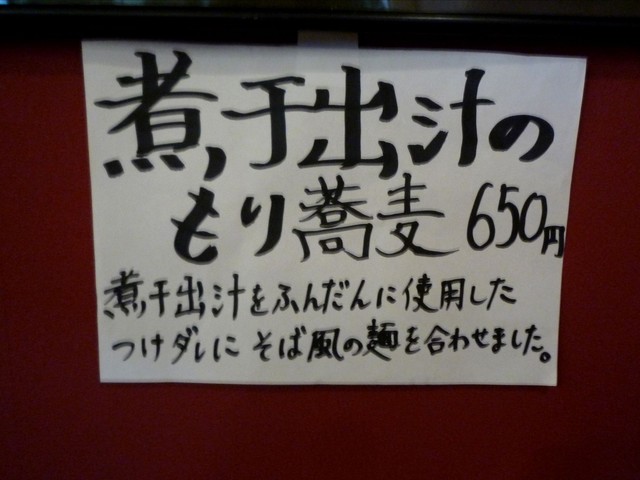 煮干出汁の
もり蕎麦 650円
煮干出汁をふんだんに使用した
つけダレに そば風の麺を合わせました。